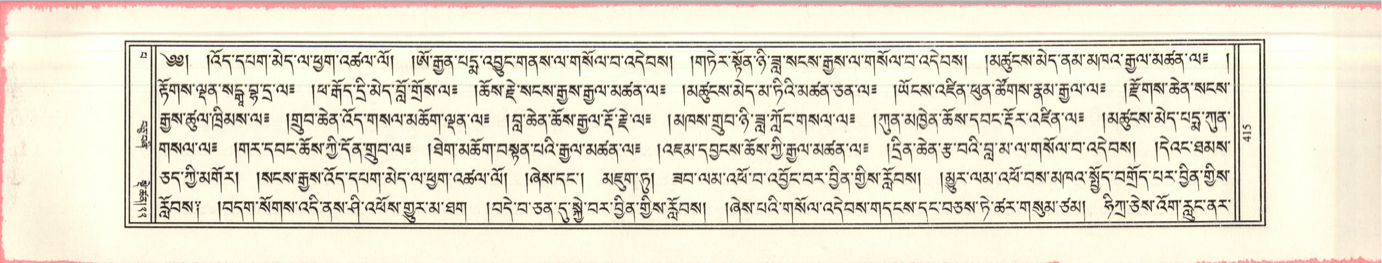 ༄༅། །འོད་དཔག་མེད་ལ་ཕྱག་འཚལ་ལོ། །ཨོ་རྒྱན་པདྨ་འབྱུང་གནས་ལ་གསོལ་བ་འདེབས། །གཏེར་སྟོན་ཉི་ཟླ་སངས་རྒྱས་ལ་གསོལ་བ་འདེབས། །མཚུངས་མེད་ནམ་མཁའ་རྒྱལ་མཚན་ལ༔ །
རྟོགས་ལྡན་སངྒྷ་བྷ་དྲ་ལ༔ །ཕ་རྒོད་དྲི་མེད་བློ་གྲོས་ལ༔ །ཆོས་རྗེ་སངས་རྒྱས་རྒྱལ་མཚན་ལ༔ །མཚུངས་མེད་མ་ཏིའི་མཚན་ཅན་ལ༔ །ཡོངས་འཛིན་ཕུན་ཚོགས་རྣམ་རྒྱལ་ལ༔ །རྫོགས་ཆེན་སངས་
རྒྱས་ཚུལ་ཁྲིམས་ལ༔ །གྲུབ་ཆེན་འོད་གསལ་མཆོག་ལྡན་ལ༔ །བླ་ཆེན་ཆོས་རྒྱལ་རྡོ་རྗེ་ལ༔ །མཁས་གྲུབ་ཉི་ཟླ་ཀློང་གསལ་ལ༔ །ཀུན་མཁྱེན་ཆོས་དབང་རྡོར་འཛིན་ལ༔ །མཚུངས་མེད་པདྨ་ཀུན་
གསལ་ལ༔ །གར་དབང་ཆོས་ཀྱི་དོན་གྲུབ་ལ༔ །ཐེག་མཆོག་བསྟན་པའི་རྒྱལ་མཚན་ལ༔ །འཇམ་དབྱངས་ཆོས་ཀྱི་རྒྱལ་མཚན་ལ༔ །དྲིན་ཆེན་རྩ་བའི་བླ་མ་ལ་གསོལ་བ་འདེབས། །དེའང་ཐམས་
ཅད་ཀྱི་མགོར། །སངས་རྒྱས་འོད་དཔག་མེད་ལ་ཕྱག་འཚལ་ལོ། །ཞེས་དང་། མཇུག་ཏུ། ཟབ་ལམ་འཕོ་བ་འབྱོང་བར་བྱིན་གྱིས་རློབས། །མྱུར་ལམ་འཕོ་བས་མཁའ་སྤྱོད་བགྲོད་པར་བྱིན་གྱིས་
རློབས༔ །བདག་སོགས་འདི་ནས་ཤི་འཕོས་གྱུར་མ་ཐག །བདེ་བ་ཅན་དུ་སྐྱེ་བར་བྱིན་གྱིས་རློབས། །ཞེས་པའི་གསོལ་འདེབས་གདངས་དང་བཅས་ཏེ་ཚར་གསུམ་ཙམ། ཧིཀྲ་ཅེས་འོག་རླུང་ནར་
415